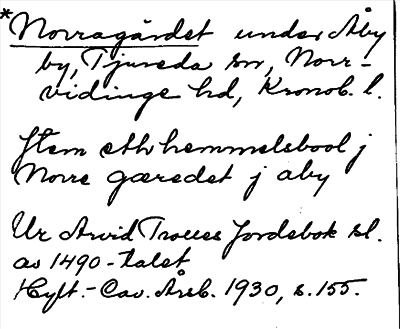 *Norragärdet under Åby
by, Tjureda sn, Norr-
vidinge hd, Kronob. l.
Item eth hemmelsbool j
Norre gæredet j aby
Ur Arvid Trolles Jordebok sl.
av 1490-talet
Hylt.-Cav. Årsb. 1930, s. 155.